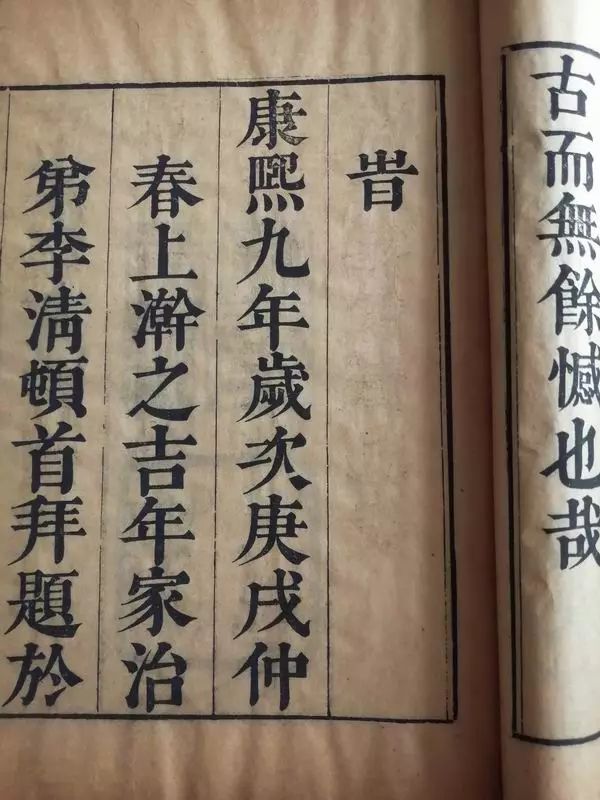 古而無餘憾也哉
旹
康熙九年歲次庚戌仲
春上澣之吉年家治
弟李清頓首拜題於